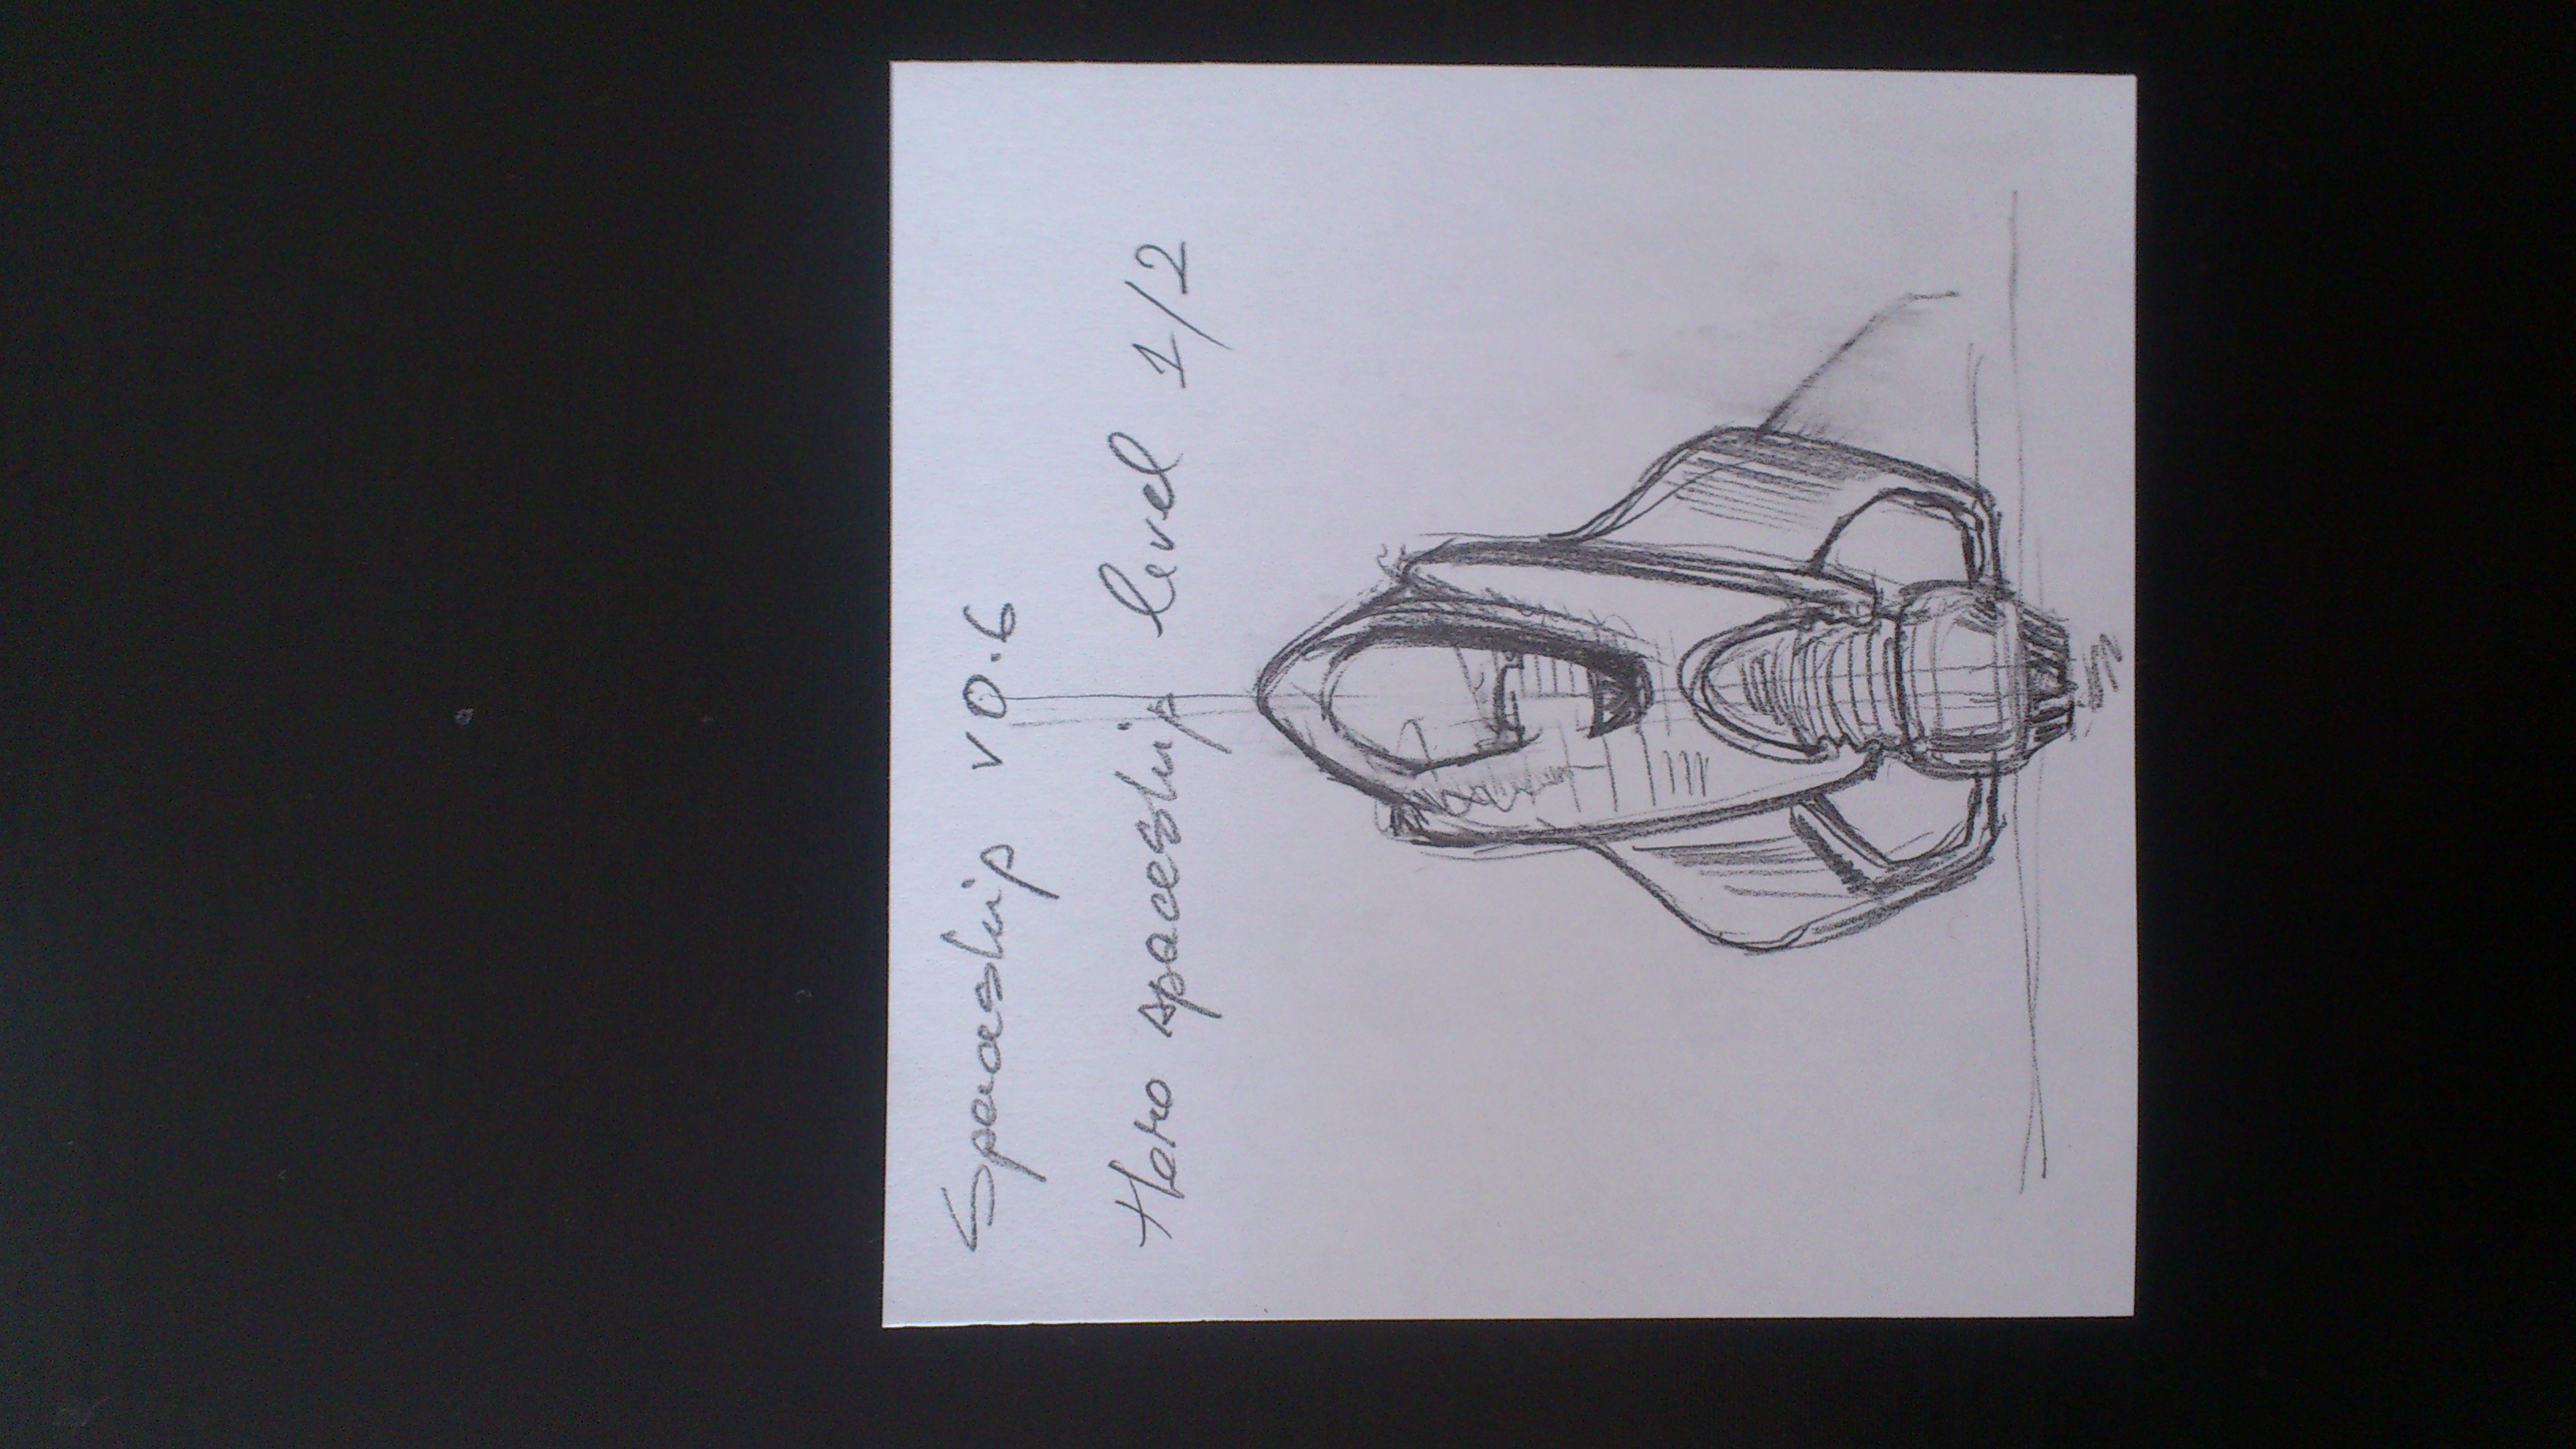 Spaceship v0.6
Hero spaceship level 1/2